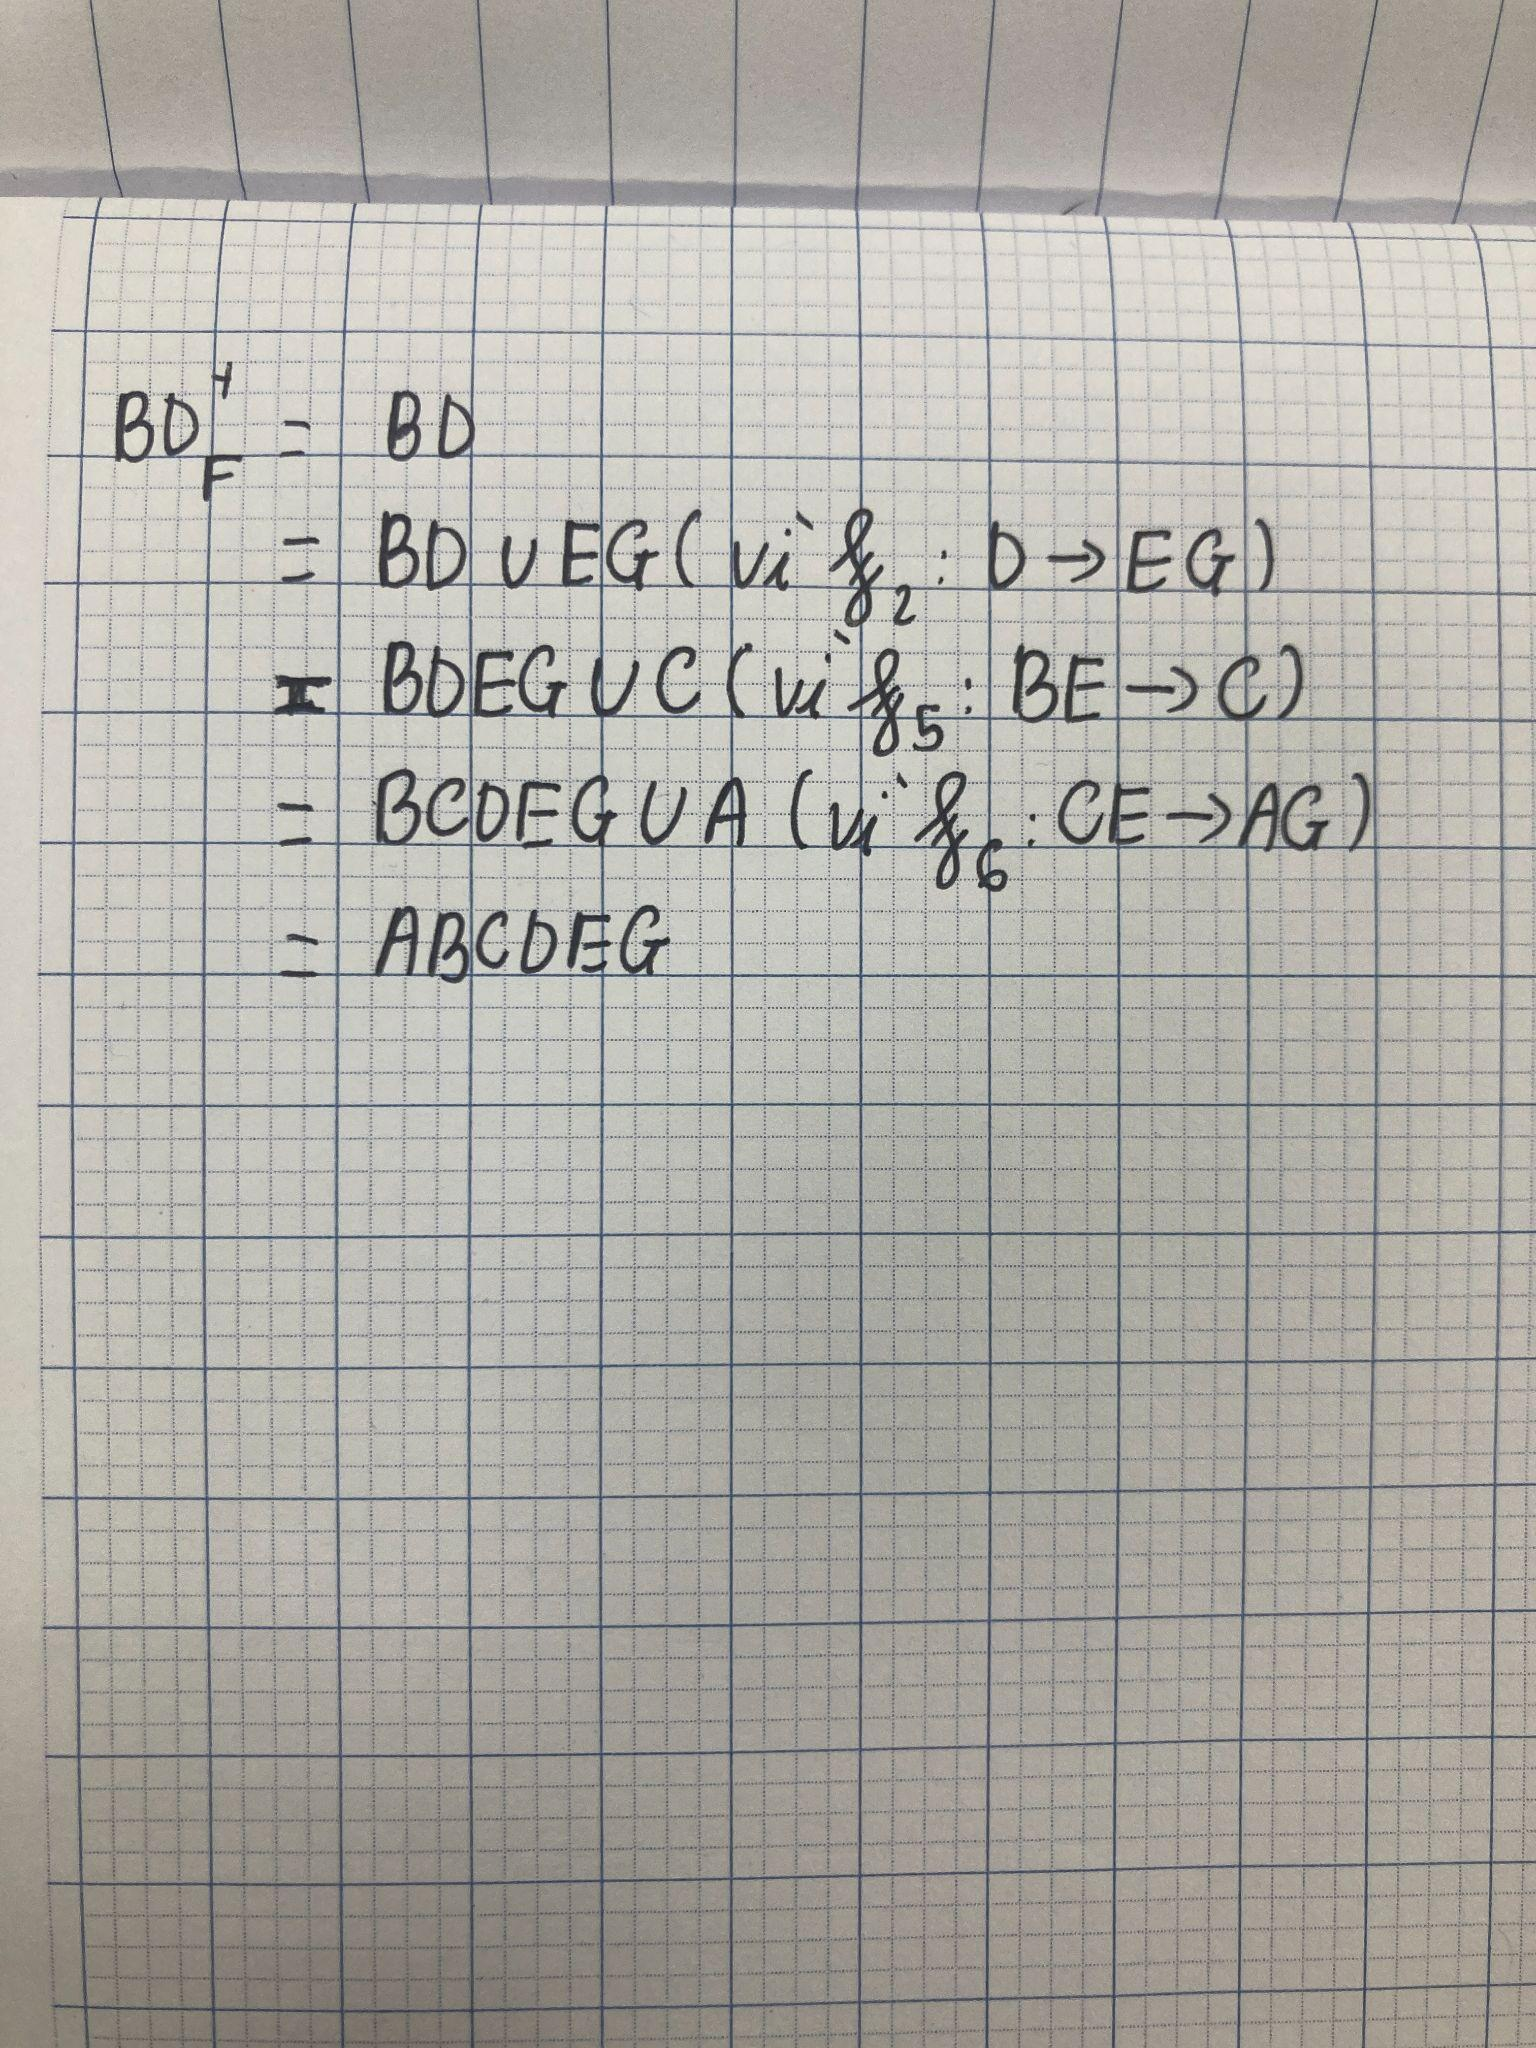 BD⁺F = BD
= BD ∪ EG (vì f₂: D → EG)
= BDEG ∪ C (vì f₅: BE → C)
= BCDEG ∪ A (vì f₆: CE → AG)
= ABCDEG